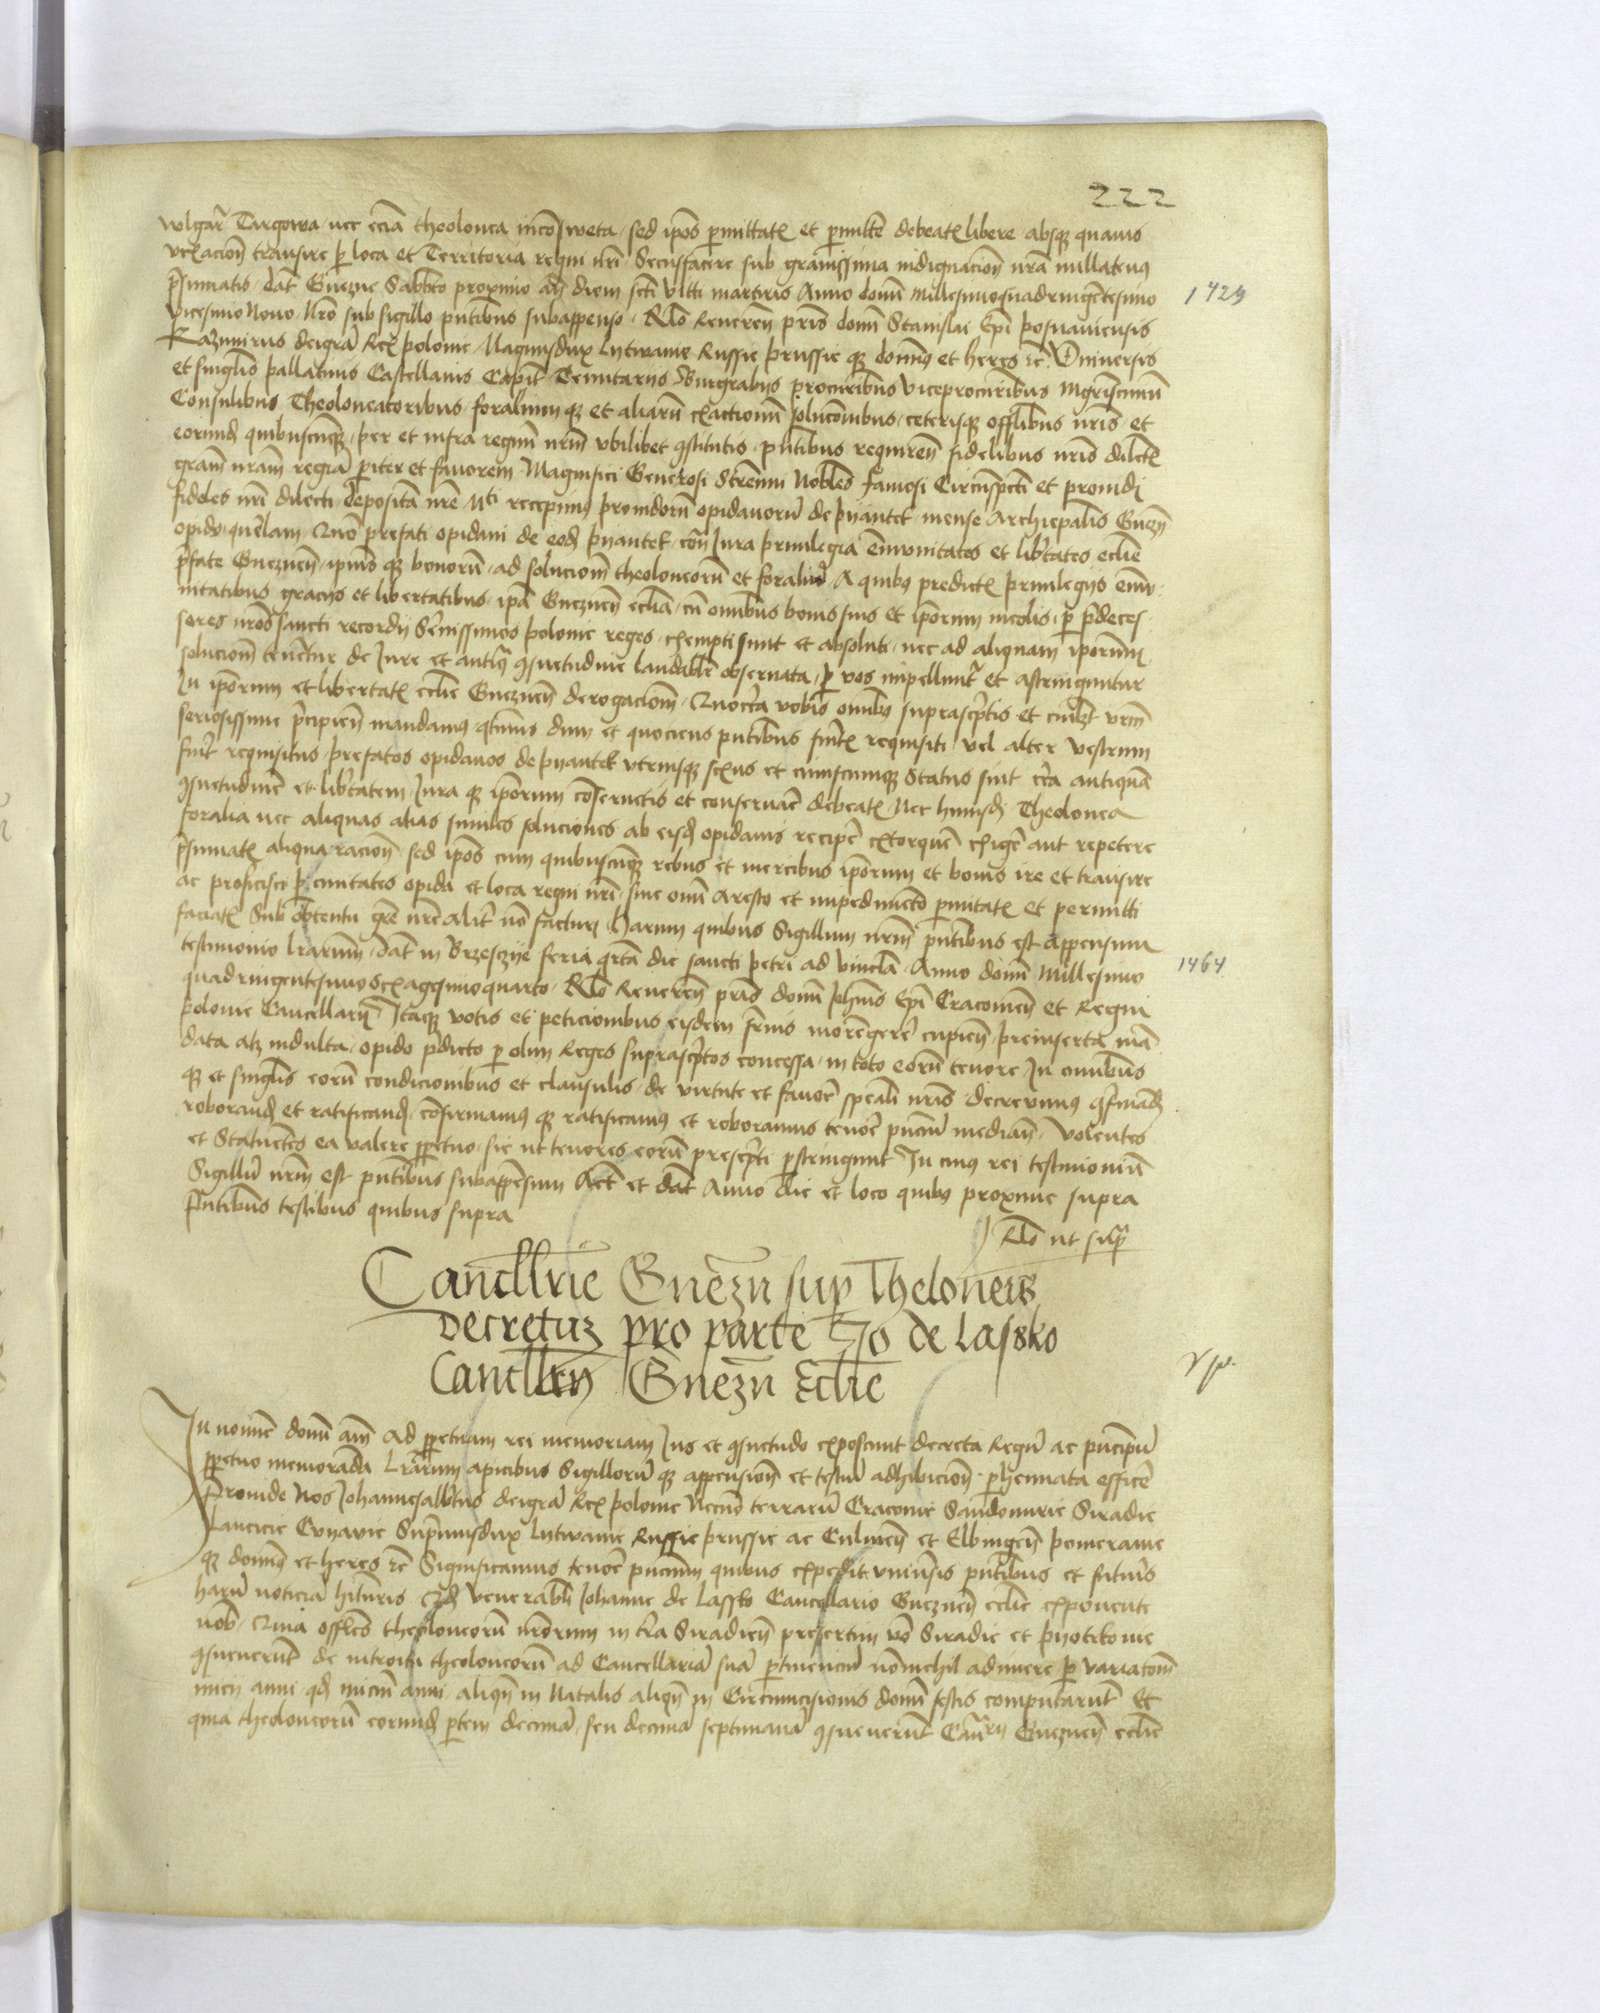 222
wlgar Targowa nec eciā theolonea incōsweta sed ipōs pmittatꝭ et pmitte debeatꝭ libere absqꝫ quauis
vexacioñ transire ꝑ loca et Territoria regni nrī Secusfacere sub grauissima indignacioñ nrā nullatenus
p̄sumatis dat̄ Gnezne Sabbato proximo añ diem sctī Viti martiris Anno domī Millesimoquadringētesimo
1429
vicesimo Nono nrō sub sigillo pn̄tibus subappenso Rlō Reuereñ pris domī Stanislai Epī posnaniensis
Kazimirus deigrā Rex polonie Magnusdux Lytwanie Russie prussie qꝫ domn9 et heres ꝛc̄ Vniuersis
et singlis pallatinis Castellanis Capit̄ Tenutarijs Burgrabijs procuribus viceprocuribus Mgriscuiuū
Consulibus Theoloneatoribus foralium qꝫ et aliarū exactionū solucōnibus ceterisqꝫ offlibus nrīs et
eorund quibuscūqꝫ per et infra regnū nrm vbilibet ꝯstitutis pn̄tibus requireñ fidelibus nrīs dilectꝭ
gram nram regiā piter et fauorem Magnifici Generosi Strenui Nobles famosi Circūspecti et prouidi
fideles nrī dilecti deposita nre Mti recepimus prouidorū opidanorū de pyantek mense Archiepalis Gnezñ
opido querelam Quō prefati opidani de eod pyantek cōn Jura priuilegia em̄vnitates et libertates ecclie
p̄fate Gnezneñ ipius qꝫ bonorū ad soluciom̄ theoloneorū et foraliū A quibus predictꝭ priuilegijs emv
nitatibus gracijs et libertatibus ipā Gnezneñ ecclia cū om̄ibus bonis suis et ipōrum incolis ꝑ p̄deces
sores nrōs sancti recordij Sernissimos polonie reges exempti sunt et absoluti nec ad aliquam iporum
soluciom̄ tenētur de Jure et antiq̄ ꝯsuetudine laudablr obseruata ꝑ vos impelluntr et astringuntur
In ipōrum et libertatꝭ ecclie Gnezneñ derogaciom̄ Quocirca vobis om̄ibus suprascriptis et cuilibet vrm̄
seriosissime p̄cipieñ mandamus qtin9 dum et quociens pn̄tibus fueritꝭ requisiti vel alter vestrum
fuerit requisitus prefatos opidanos de pyantek vtriusqꝫ sexus et cuiuscumqꝫ Status sint circa antiquā
ꝯsuetudinē et libertatem Jura qꝫ ipōrum cōseruetis et conseruare debeatꝭ Nec huiusd Theolonea
foralia nec aliquas alias similes soluciones ab eisd opidanis recipe extorquere exige aut repetere
p̄sumatꝭ aliqua racioñ sed ipōs cum quibuscūqꝫ rebus et mercibus ipōrum et bonis ire et transire
ac proficisci ꝑ ciuitates opida et loca regni nrī sine om̄i Aresto et impedimēto pmittatꝭ et permitti
faciatꝭ Sub obtentu grē nrē alit̄ nō facturi Harum quibus Sigillum nrm pn̄tibus est appensum
testimonio lrarum dat̄ in Brzesczye feria qrta die sancti petri ad vincla Anno domī Millesimo
1464
quadringentesimoSexagesimoquarto Rlō Reuereñ pris domī Johīs Epī Cracouieñ et Regni
polonie Cancellarij Itaqꝫ votis et peticionibus eisdem fauīs morengerere cupieñ preinserta mā
data atꝫ indulta opido p̄dicto ꝑ olim Reges suprascriptos concessa in toto eorū tenore In om̄ibus
qꝫ et singlis eorū condicionibus et clausulis de virtute et fauore speciali nrīs decreuimus ꝯfirmād
roborand et ratificand confirmamus qꝫ ratificamus et roboramus tenore pn̄ciū medianē Volentes
et Statuētes ea valere ppetuo sic ut tenores eorū prescripti pstringunt In cuius rei testimoniū
Sigillū nrm est pn̄tibus subappēsum Act̄ et dat̄ Anno die et loco quibus proxime supra
Pn̄tibus testibus quibus supra
Rlō ut supra
Canclłrie Gnezn̄ sup Theloneis
Decretuꝫ pro parte Jo de Lassko
Canclłrij Gnezn̄ Ecclie
In nomine domī amē Ad ppetuam rei memoriam Jus et ꝯsuetudo exposcunt decreta Regū ac principū
ppetuo memoranda Lrarum apicibus Sigillorū qꝫ appensioñ et testiū adhibicioñ phennata efficere
Proinde Nos Johannesalbertus deigrā Rex polonie Necnō terrarū Cracouie Sandomirie Siradie
Lancicie Cuyauie Supremusdux Lytwanie Russie prussie ac Culmeñ et Elbingeñ pomeranie
qꝫ domn9 et heres ꝛc̄ Significamus tenore pn̄cium quibus expedit vniūsis pn̄tibus et futuris
harū noticiā hituris Qd venerabli Johanne de Lassko Cancellario Gnezneñ ecclie exponente
nob̄ Quia offles theoloneorū nrorum in tra Siradieñ presertim vō Siradie et pyotrkouie
ꝯsueuerūt de introitu theoloneorū ad Cancellariā suā ptinenciū nōnichil adimere ꝑ variatōm
inicij anni qd iniciū anni aliqn̄ in Natalis aliqn̄ in Circumcisionis domī festis computarūt Et
quia theoloneorū eorund ptem decimā seu decimā septimanā ꝯsueuerūt Canrij Gnezneñ ecclie